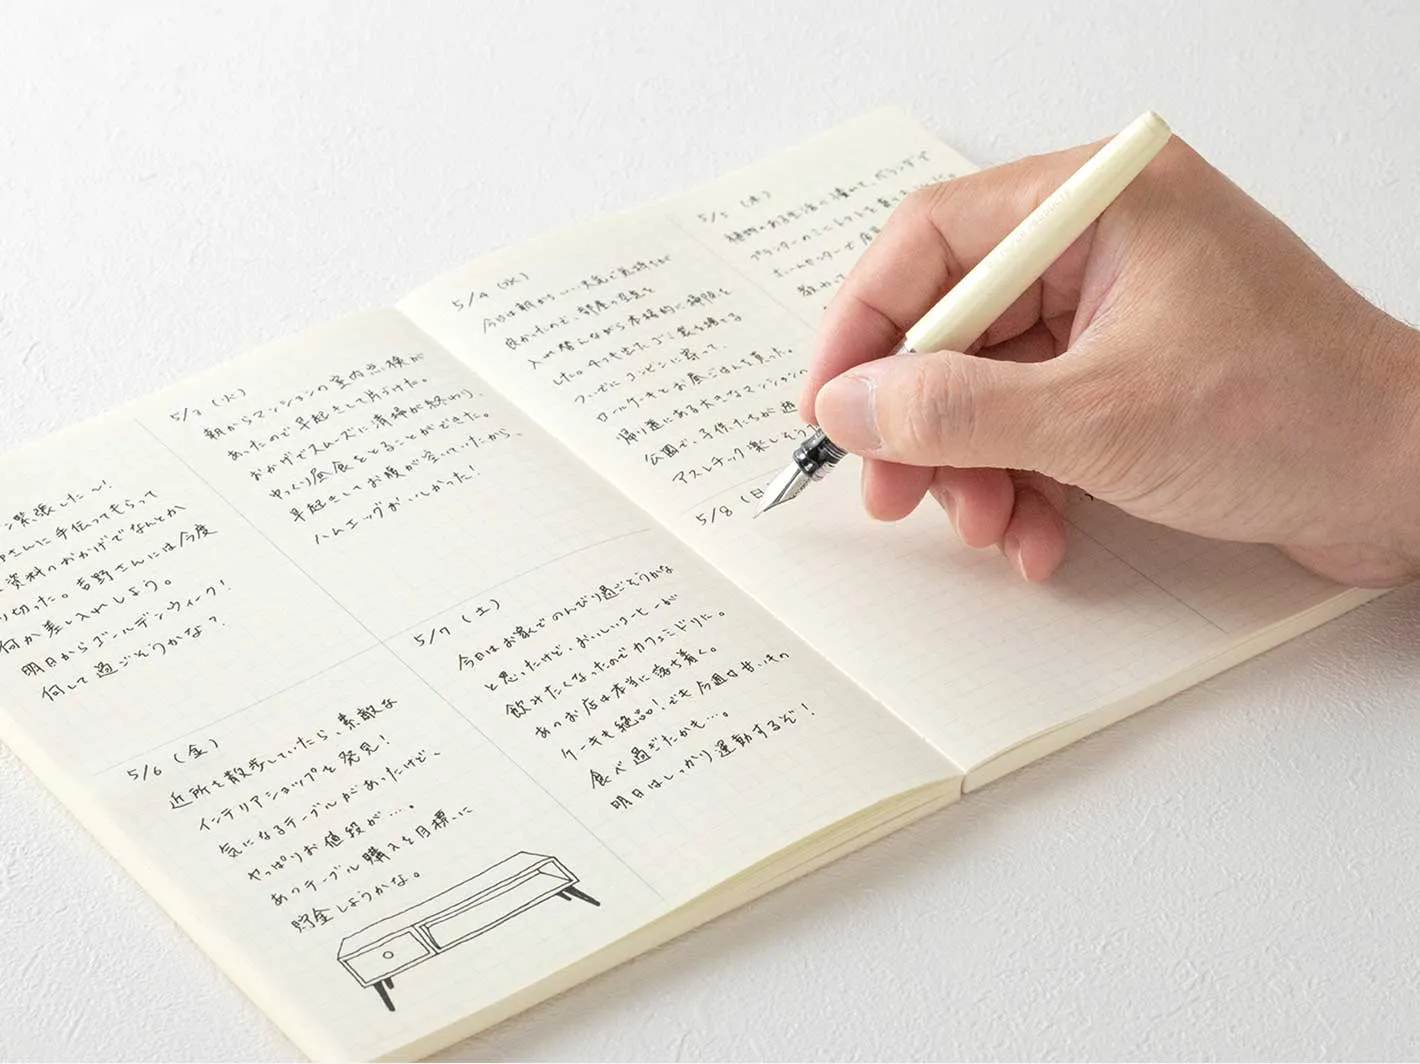 緊張した〜!
さんに手伝ってもらって
資料のおかげでなんとか
り切った。吉野さんには今度
何か差し入れしよう。
明日からゴールデンウィーク!
何して過ごそうかな?
5/3 (火)
朝からマンションの室内点検が
あったので早起きして片づけた。
おかげでスムーズに清掃が終わり、
ゆっくり昼食をとることができた。
早起きしてお腹が空いていたから、
ハムエッグがおいしかった!
5/6 (金)
近所を散歩していたら、素敵な
インテリアショップを発見!
気になるテーブルがあったけど、
やっぱりお値段が…。
あのテーブル購入を目標に
貯金しようかな。
5/7 (土)
今日はお家でのんびり過ごそうかな
と思ったけど、おいしいコーヒーが
飲みたくなったのでカフェミドリに。
あのお店は本当に落ち着く。
ケーキも絶品!でも今週は甘いもの
食べ過ぎたかも…。
明日はしっかり運動するぞ!
5/4 (水)
今日は朝からいい天気で気持ちが
良かったので、部屋の空気を
入れ替えながら本格的に掃除を
した。4つも出たゴミ袋を捨てる
ついでにコンビニに寄って、
ロールケーキとお昼ごはんを買った。
帰り道にある大きなマンション
公園で、子供たちが遊
アスレチック楽しそう
5/5 (木)
植物のある生活に憧れて、ベランダで
プランターのミニトマトを
ホームセンターで
教わって
5/8 (日